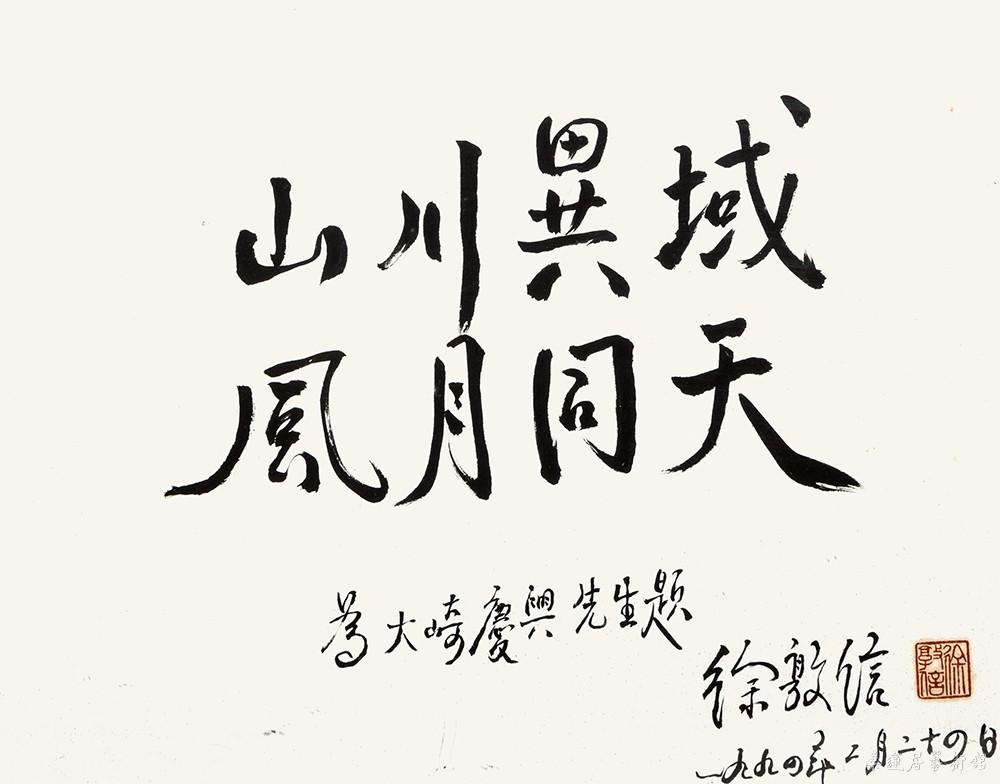 山川異域
風月同天
為大崎慶興先生題
徐敦信
徐敦信
一九九四年二月二十四日